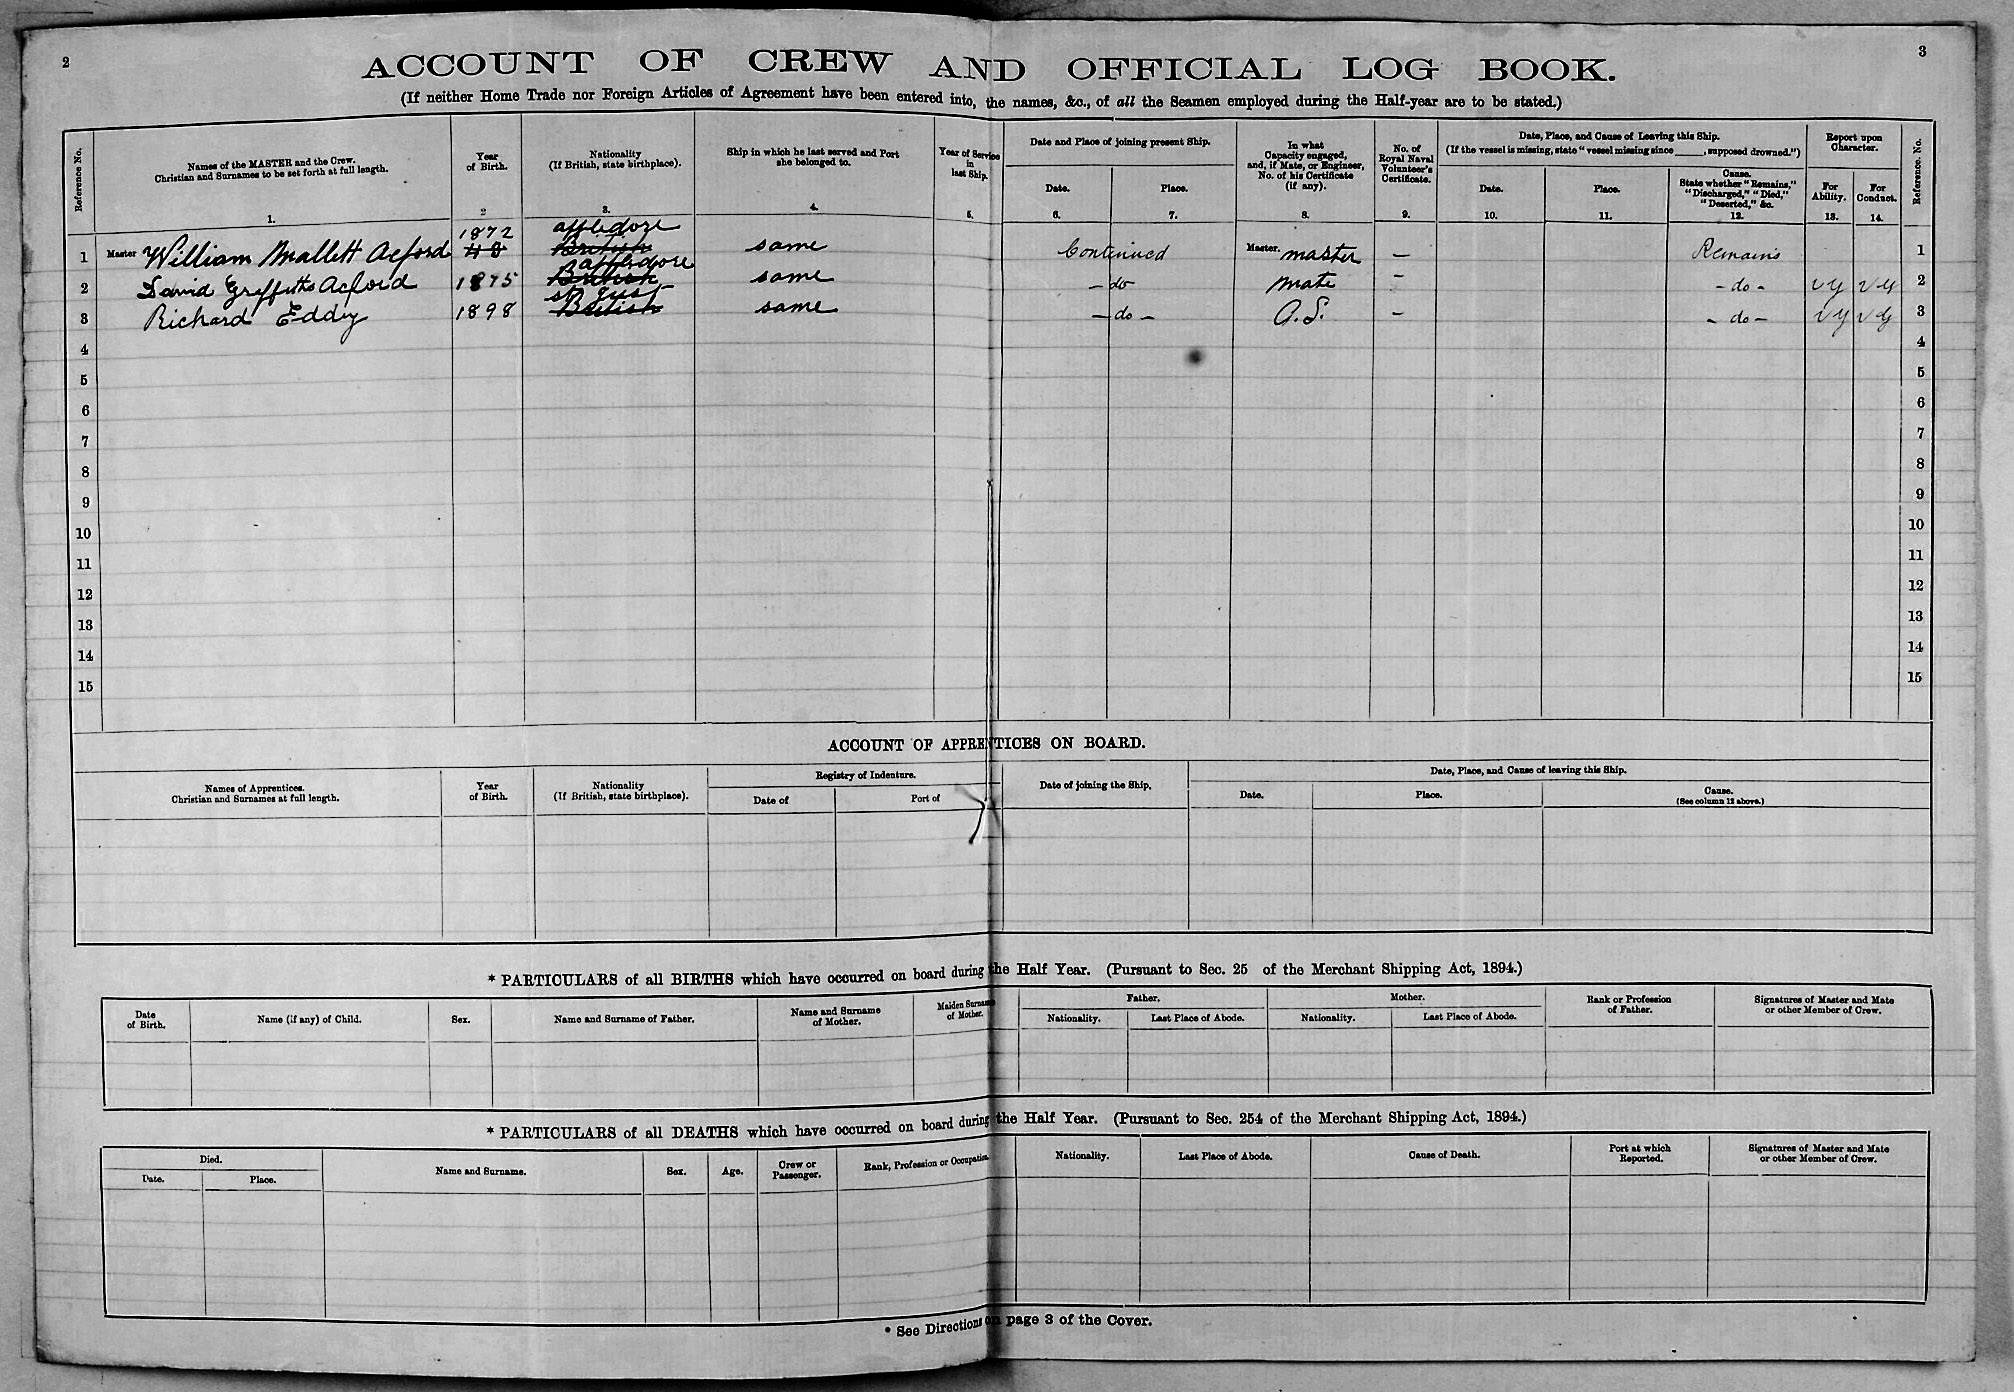 2
3
ACCOUNT OF CREW AND OFFICIAL LOG BOOK.
(If neither Home Trade nor Foreign Articles of Agreement have been entered into, the names, &c., of all the Seamen employed during the Half-year are to be stated.)
Reference No.
Names of the MASTER and the Crew.
Christian and Surnames to be set forth at full length.
1.
Year
of Birth.
2
Nationality
(If British, state birthplace).
3.
Ship in which he last served and Port
she belonged to.
4.
Year of Service
in
last Ship.
5.
Date and Place of joining present Ship.
Date.
6.
Place.
7.
In what
Capacity engaged,
and, if Mate, or Engineer,
No. of his Certificate
(if any).
8.
No. of
Royal Naval
Volunteer's
Certificate.
9.
Date, Place, and Cause of Leaving this Ship.
(If the vessel is missing, state "vessel missing since ____, supposed drowned.")
Date.
10.
Place.
11.
Cause.
State whether "Remains,"
"Discharged," "Died,"
"Deserted," &c.
12.
Report upon
Character.
For
Ability.
13.
For
Conduct.
14.
Reference No.
1872 appledore
1 Master William Mallett Acford 48 British same Continued Master. master – Remains 1
appledore
2 David Griffiths Acford 1875 British same – do mate – – do – V G V G 2
St Just
3 Richard Eddy 1898 British same – do – O.S. – – do – V G V G 3
4 4
5 5
6 6
7 7
8 8
9 9
10 10
11 11
12 12
13 13
14 14
15 15
ACCOUNT OF APPRENTICES ON BOARD.
Names of Apprentices.
Christian and Surnames at full length.
Year
of Birth.
Nationality
(If British, state birthplace).
Registry of Indenture.
Date of
Port of
Date of joining the Ship.
Date, Place, and Cause of leaving this Ship.
Date.
Place.
Cause.
(See column 12 above.)
* PARTICULARS of all BIRTHS which have occurred on board during the Half Year. (Pursuant to Sec. 25 of the Merchant Shipping Act, 1894.)
Date
of Birth.
Name (if any) of Child.
Sex.
Name and Surname of Father.
Name and Surname
of Mother.
Maiden Surname
of Mother.
Father.
Nationality.
Last Place of Abode.
Mother.
Nationality.
Last Place of Abode.
Rank or Profession
of Father.
Signatures of Master and Mate
or other Member of Crew.
* PARTICULARS of all DEATHS which have occurred on board during the Half Year. (Pursuant to Sec. 254 of the Merchant Shipping Act, 1894.)
Died.
Date.
Place.
Name and Surname.
Sex.
Age.
Crew or
Passenger.
Rank, Profession or Occupation.
Nationality.
Last Place of Abode.
Cause of Death.
Port at which
Reported.
Signatures of Master and Mate
or other Member of Crew.
* See Directions on page 3 of the Cover.